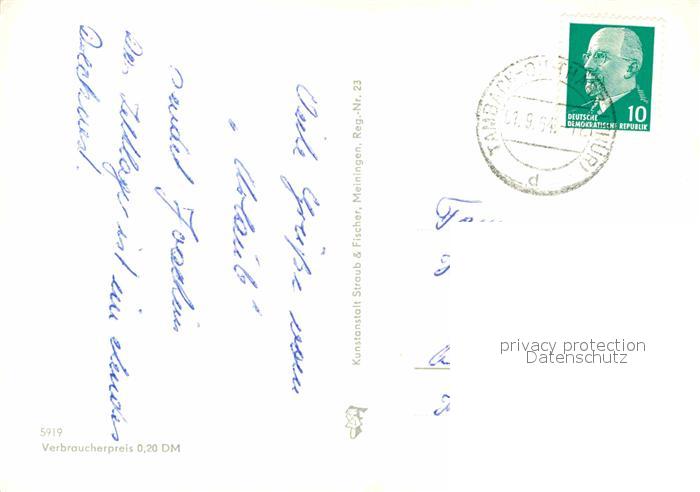 Viele Grüße vom
"Urlaub"
sendet Joachim
Der Zeltlager ist ein
Kunstanstalt Straub & Fischer, Meiningen, Reg.-Nr. 23
TAMBACH-DIETHARZ (THÜR)
1.9.64
d
DEUTSCHE
DEMOKRATISCHE REPUBLIK
10
Fam
privacy protection
Datenschutz
5919
Verbraucherpreis 0,20 DM